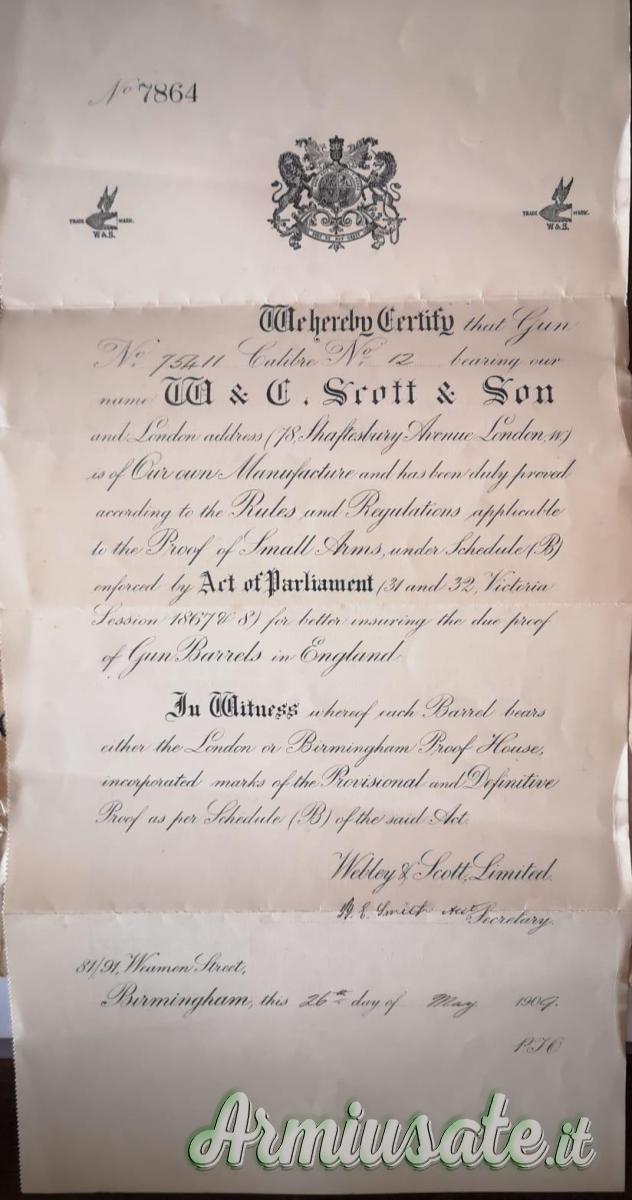 No 7864
TRADE MARK.
W&S.
TRADE MARK.
W.&S.
We hereby Certify that Gun
No. 75411 Calibre No. 12 bearing our
name W & C. Scott & Son
and London address (78, Shaftesbury Avenue London, W)
is of Our own Manufacture and has been duly proved
according to the Rules and Regulations applicable
to the Proof of Small Arms, under Schedule (B)
enforced by Act of Parliament (31 and 32, Victoria
Session 1867 & 8) for better insuring the due proof
of Gun Barrels in England
In Witness whereof each Barrel bears
either the London or Birmingham Proof House,
incorporated marks of the Provisional and Definitive
Proof as per Schedule (B) of the said Act.
Webley & Scott, Limited.
Smith Secretary.
81/91, Weaman Street,
Birmingham, this 26th day of May 1909.
P.T.O
Armiusate.it